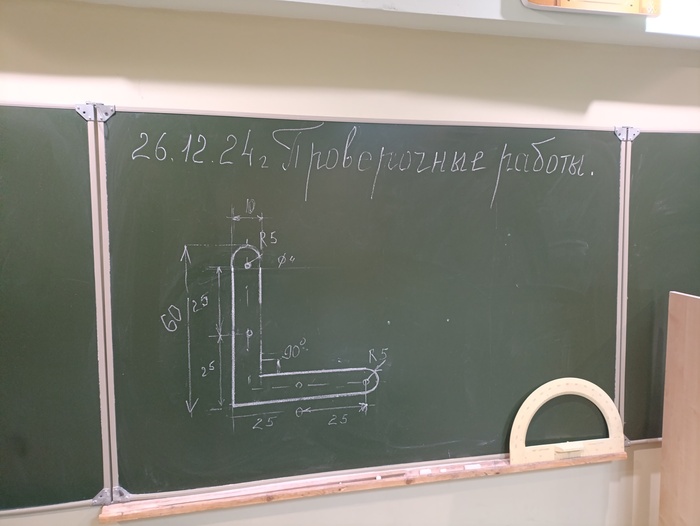 26.12.24г Проверочные работы.
10
R5
60
25
25
90°
R5
25
25